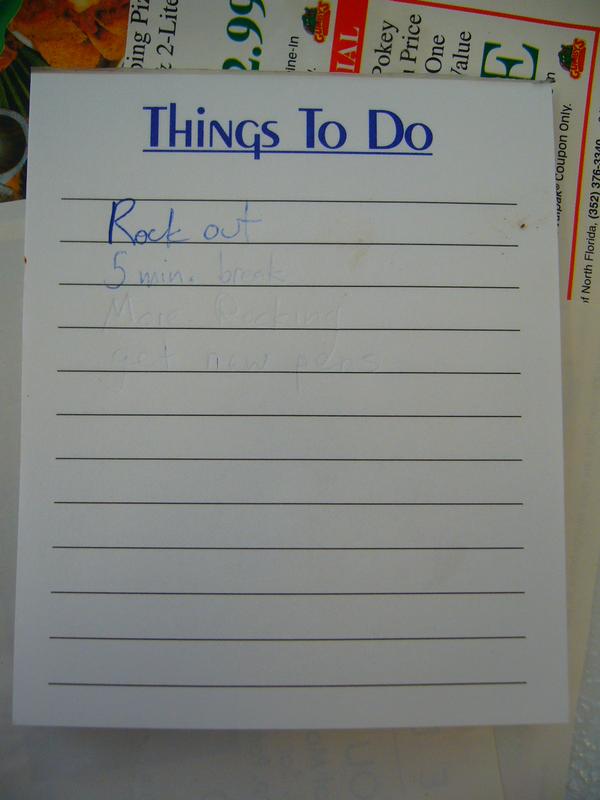 ping Piz
& 2-Lite
2.99
ine-In
GUMBY'S
IAL
Pokey
Price
One
Value
E
GUMBY'S
Coupon Only.
of North Florida, (352) 376-3340
Things To Do
Rock out
5 min. break
More Rocking
get new pens